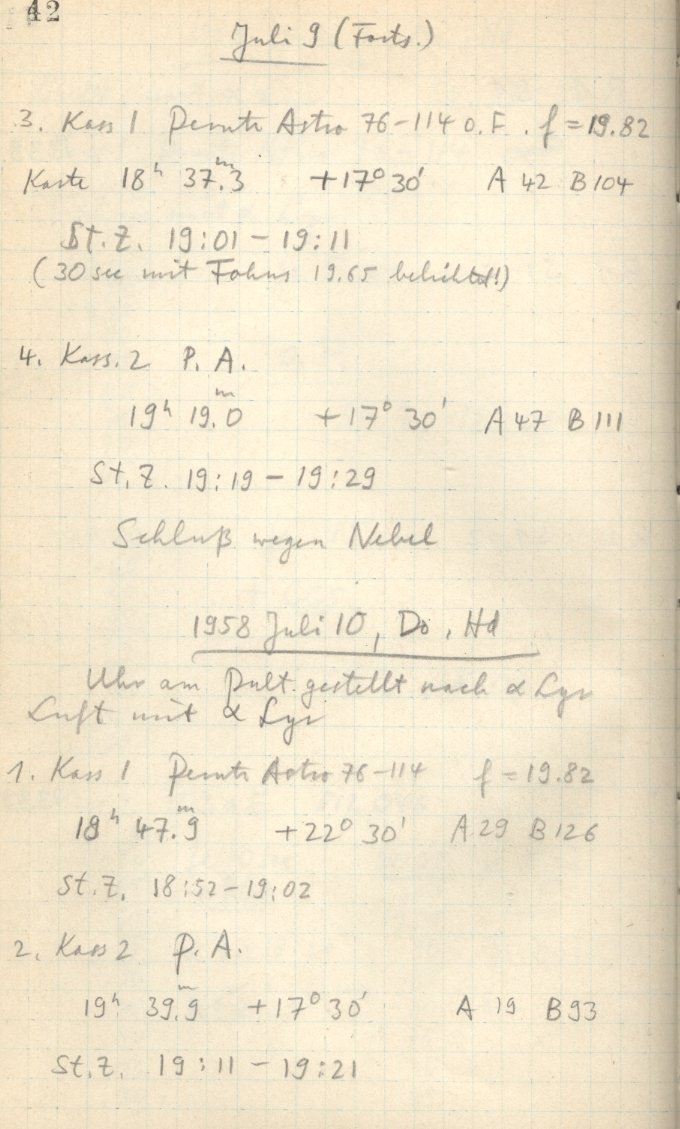 42
Juli 9 (Forts.)
3. Kass 1 Perutz Astro 76-114 o.F. f=19.82
Karte 18ʰ 37.ᵐ3 +17° 30' A 42 B 104
St.Z. 19:01 - 19:11
(30 sec mit Fokus 19.65 belichtet!)
4. Kass. 2 P. A.
19ʰ 19.ᵐ0 +17° 30' A 47 B 111
St.Z. 19:19 - 19:29
Schluß wegen Nebel
1958 Juli 10, Do, Hd
Uhr am Pult gestellt nach α Lyr
Luft mit α Lyr
1. Kass 1 Perutz Astro 76-114 f=19.82
18ʰ 47.ᵐ9 +22° 30' A 29 B 126
St.Z. 18:52-19:02
2. Kass 2 P. A.
19ʰ 39.ᵐ9 +17° 30' A 19 B 93
St.Z. 19:11 - 19:21